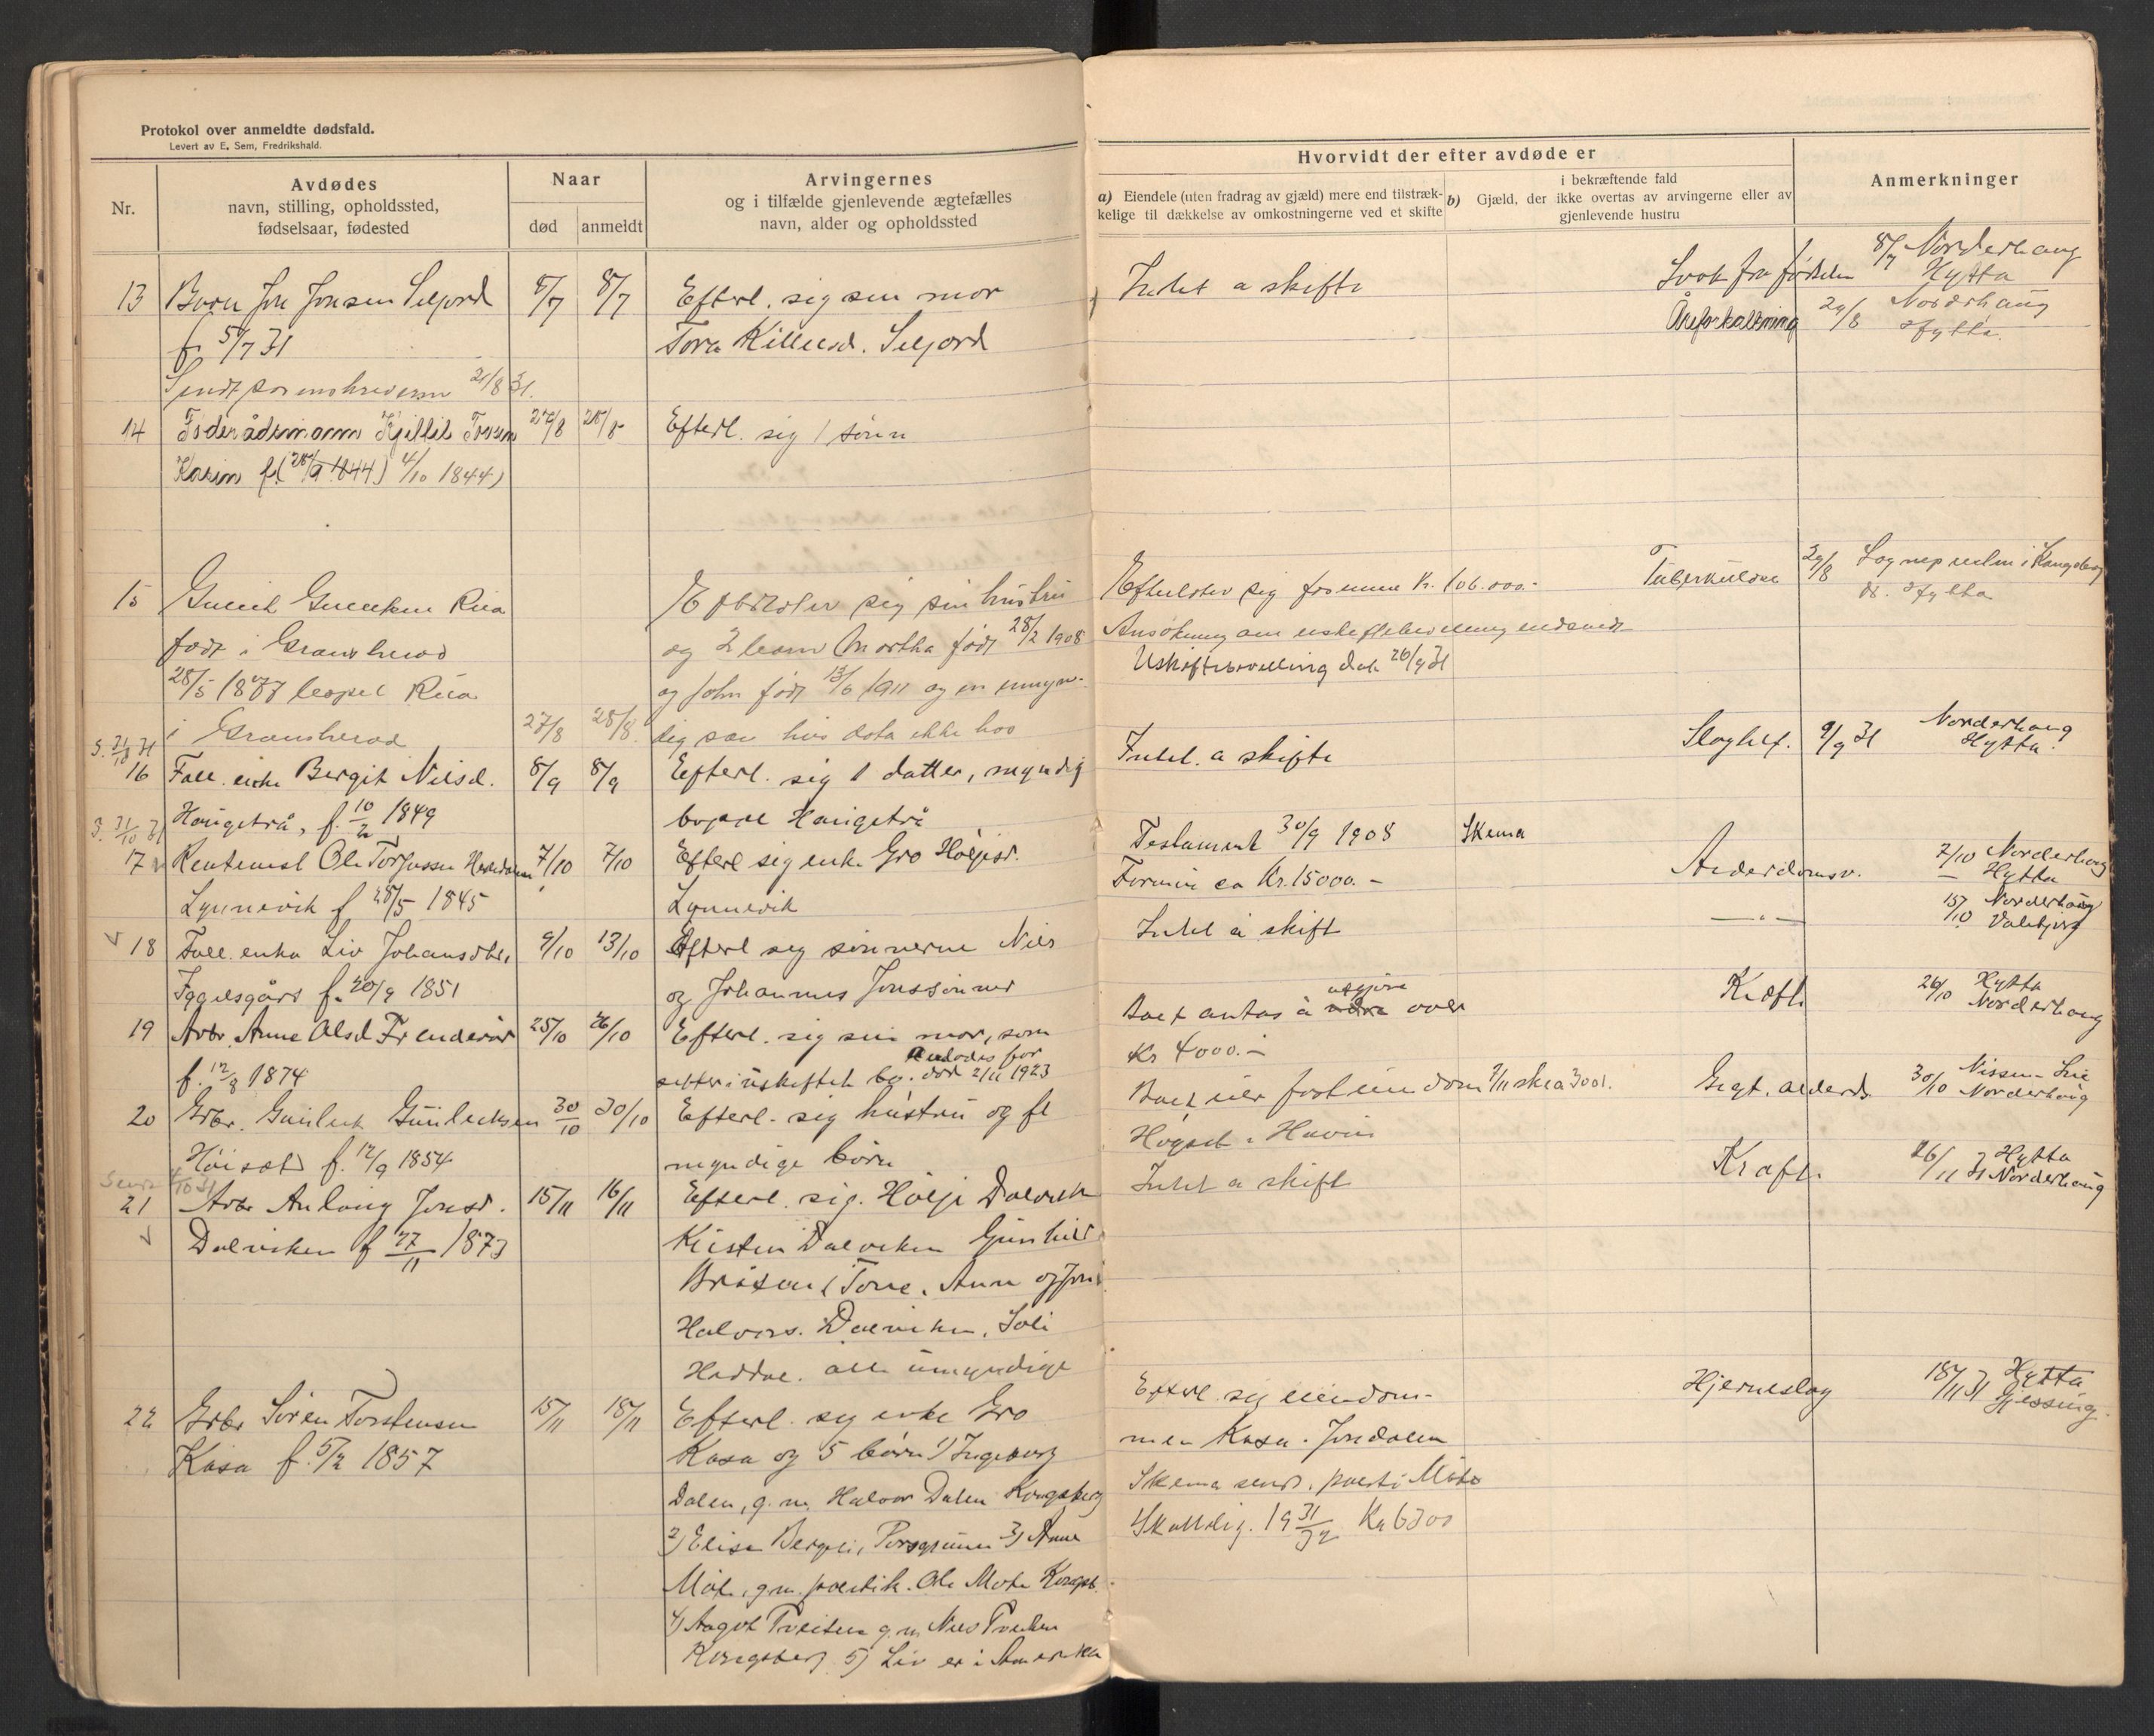 Protokol over anmeldte dødsfald.
Levert av E. Sem, Fredrikshald.
Nr.
Avdødes
navn, stilling, opholdssted,
fødselsaar, fødested
Naar
død
anmeldt
Arvingernes
og i tilfælde gjenlevende ægtefælles
navn, alder og opholdssted
Hvorvidt der efter avdøde er
a) Eiendele (uten fradrag av gjæld) mere end tilstræk-
kelige til dækkelse av omkostningerne ved et skifte
i bekræftende fald
b) Gjæld, der ikke overtas av arvingerne eller av
gjenlevende hustru
Anmerkninger
13 Barn Jon Jonsen Seljord 8/7 8/7 Efterl. sig sin mor Intet a skifte Svak fra fødselen 8/7 Norderhaug
f. 5/7 31 Tora Seljord Hytta
Åreforkalkning 29/8 Norderhaug
Hytta.
Sendt sorenskriveren 21/8 31.
14 Føderådsmann Kjittil 27/8 28/8 Efterl. sig 1 sønn
f. (28/9 1844) 4/10 1844)
15 Efterlater sig sin hustru Efterlater sig formue kr. 106.000.- Tuberkulose 29/8 Sognepresten i Kongsberg
dr. Hytta
født i Gransherad og 2 barn Martha født 28/2 1908 Ansøkning om uskiftebevilling indsendt
Uskiftebevilling dat. 26/9 31
28/5 1877 bopel Rua og John født 13/6 1911 og en umyn-
i Gransherad 27/8 28/8. dig søn hvis data ikke haves
S. 31/10 31
16 Fall. enke Bergit Nilsd. 8/9 8/9 Efterl. sig 1 datter, myndig Intet a skifte Slagtilf. 9/9 31 Norderhaug
Hytta.
Haugetrå, f. 10/2 1849 bopæl Haugetrå
S. 31/10 31
17 Rentenist Ole Torjussen 7/10 7/10 Efterl sig enke Gro Høljesd. Testament 30/9 1908 Skema Alderdomsv. 7/10 Norderhaug
Hytta
Lynnevik f 28/5 1845 Lynnevik Formue ca Kr. 15000.-
18 Fall. enke Liv Johansdtr. 9/10 13/10 Efterl sig sønnerne Nils Intet å skift —„— 15/10 Norderhaug
Valebjørg
f. 20/9 1851 og Johannes Jonssønner
19 Arbr. Anne Olsd Frendeår 25/10 26/10 Efterl. sig sin mor, som Boet antas å utgjøre over Kræft. 26/10 Hytta
Norderhaug
f. 12/8 1874 sitter i uskiftet bo. død 2/11 1923 Kr 4000.-
20 Grbr. Gunleik Gunleiksen 30/10 30/10 Efterl. sig hustru og fl Boet eier fast eiendom Gigt. alderd. 30/10 Nissen-Lie
Norderhaug
Høisæt f. 12/9 1854 myndige børn Høgset i Hovin
21 Arbr Anlaug Jonsd. 15/11 16/11 Efterl. sig. Hølje Dalviken Intet a skift Kræft. 16/11 31 Hytta
Norderhaug
Dalviken f 27/11 1873 Kristen Dalviken Gunhild
Tone, Anne og Jon
Halvors. Dalviken, Soli
Haddal. alle umyndige
22 Grbr Søren Torstensen 15/11 18/11 Efterl. sig enke Gro Efterl. sig eiendom- Hjerneslag 18/11 31 Hytta
Gjessing.
Kasa f. 5/2 1857 Kasa og 5 børn 1) Ingeborg men Kasa i Jondalen
Dalen, g.m. Halvor Dalen Kongsberg Skema sendt. Møte
2) Elise Bergli, Porsgrunn 3) Anne Skattelig. 1931/32 Kr 6300
Møte, g.m. politik. Ole Møte Kongsb.
4) Aagot g.m. Nils
Kongsberg 5) Liv er i Amerika